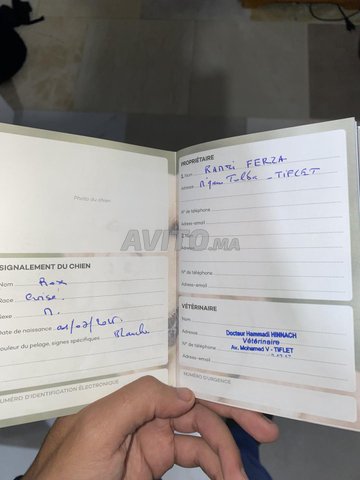 Photo du chien
SIGNALEMENT DU CHIEN
Nom Rox
Race Croisé.
Sexe M.
Date de naissance
Couleur du pelage, signes spécifiques Blanche
NUMÉRO D'IDENTIFICATION ÉLECTRONIQUE
PROPRIÉTAIRE
1. Nom RAMZI FERZA
Adresse TIFLET
N° de téléphone
Adresse-email
2. Nom
Adresse
N° de téléphone
Adress-email
VÉTÉRINAIRE
Nom
Adresse Docteur Hammadi HINNACH
Vétérinaire
N° de téléphone Av. Mohamed V - TIFLET
Adress-email
NUMÉRO D'URGENCE
AVITO.MA